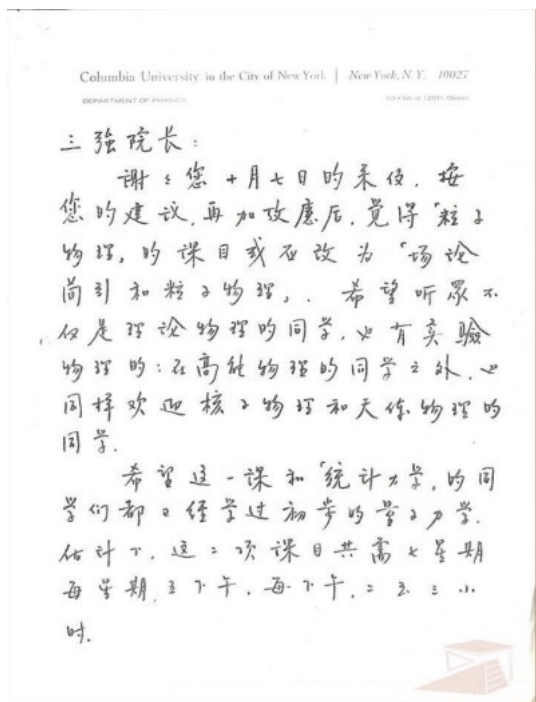 Columbia University in the City of New York | New York, N.Y. 10027
DEPARTMENT OF PHYSICS
三強院长：
谢々您十月七日的来信．按
您的建议，再加攷慮后，觉得「粒子
物理」的课目或应改为「场论
简引和粒子物理」．希望听眾不
仅是理论物理的同学，也有实驗
物理的；在高能物理的同学之外，也
同样欢迎核子物理和天体物理的
同学．
希望这一课和「统计力学」的同
学们都已经学过初步的量子力学．
估计下，这二项课目共需七星期
每星期五下午，每下午，二至三小
时．